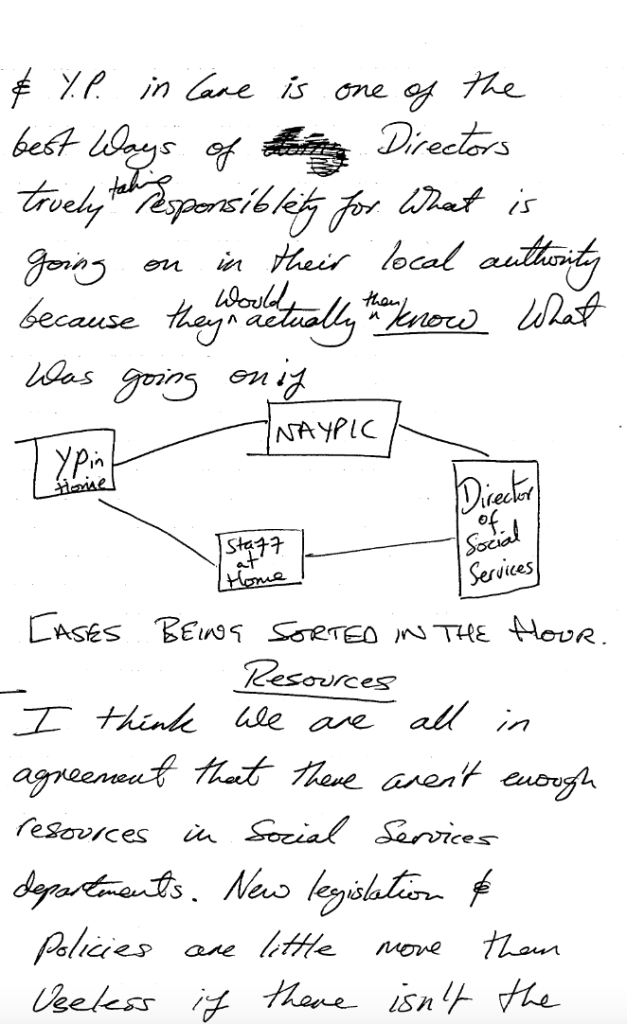 & Y.P. in Care is one of the
best Ways of Directors
truely taking responsiblety for What is
going on in their local authority
because they Would actually then know What
Was going on if
NAYPIC
YP in
Home
Director
of
Social
Services
Staff
at
Home
CASES BEING SORTED IN THE HOUR.
Resources
I think We are all in
agreement that there aren't enough
resources in Social Services
departments. New legislation &
Policies are little more than
Useless if there isn't the